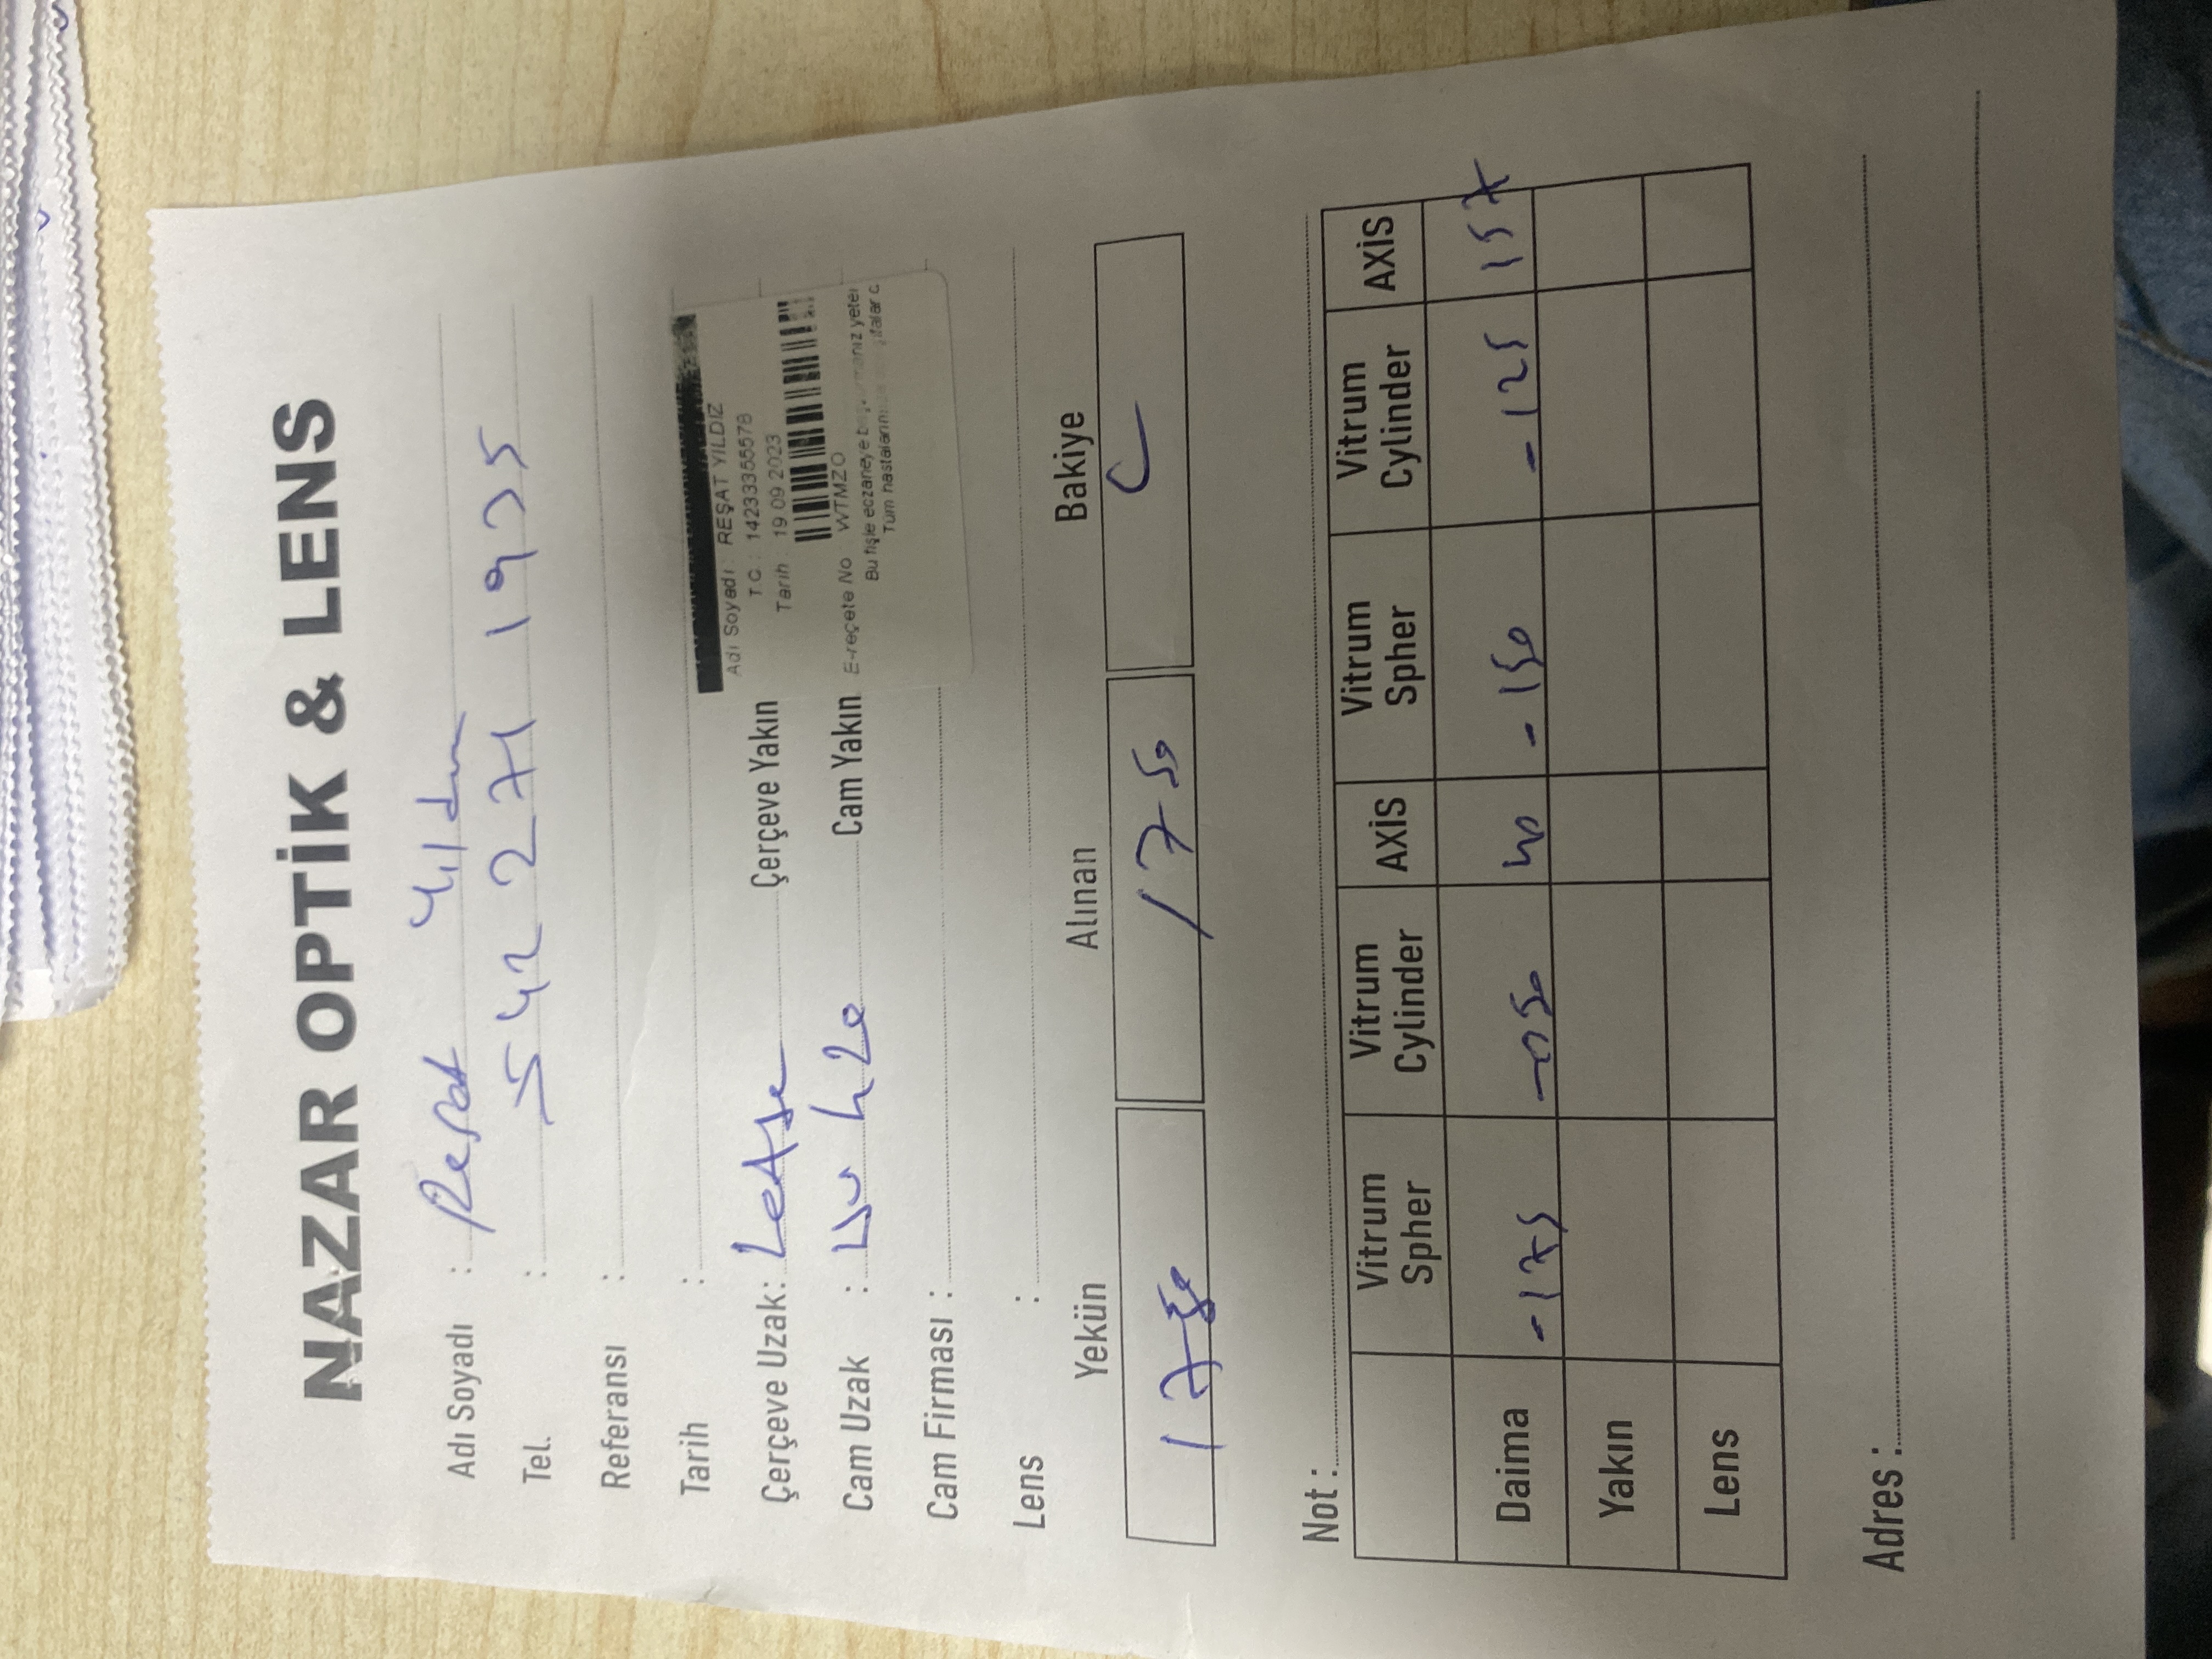 NAZAR OPTİK & LENS
Adı Soyadı : Reşat
Tel. : 542 271 1935
Referansı :
Tarih :
Çerçeve Uzak: Çerçeve Yakın
Cam Uzak : 420 Cam Yakın
Cam Firması :
Lens :
Adı Soyadı : REŞAT YILDIZ
T.C. : 14233355578
Tarih : 19.09.2023
E-reçete No WTMZO
Bu fişle eczaneye yeter
Tüm
Yekün Alınan Bakiye
1750 1750
Not :
Vitrum Spher Vitrum Cylinder AXİS Vitrum Spher Vitrum Cylinder AXİS
Daima -175 -050 40 -150 -125 157
Yakın
Lens
Adres :